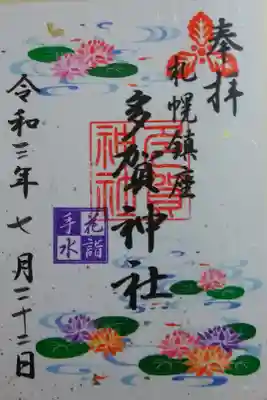 奉拝
札幌鎮座
多賀神社
多賀神社
花詣
手水
令和三年七月二十二日